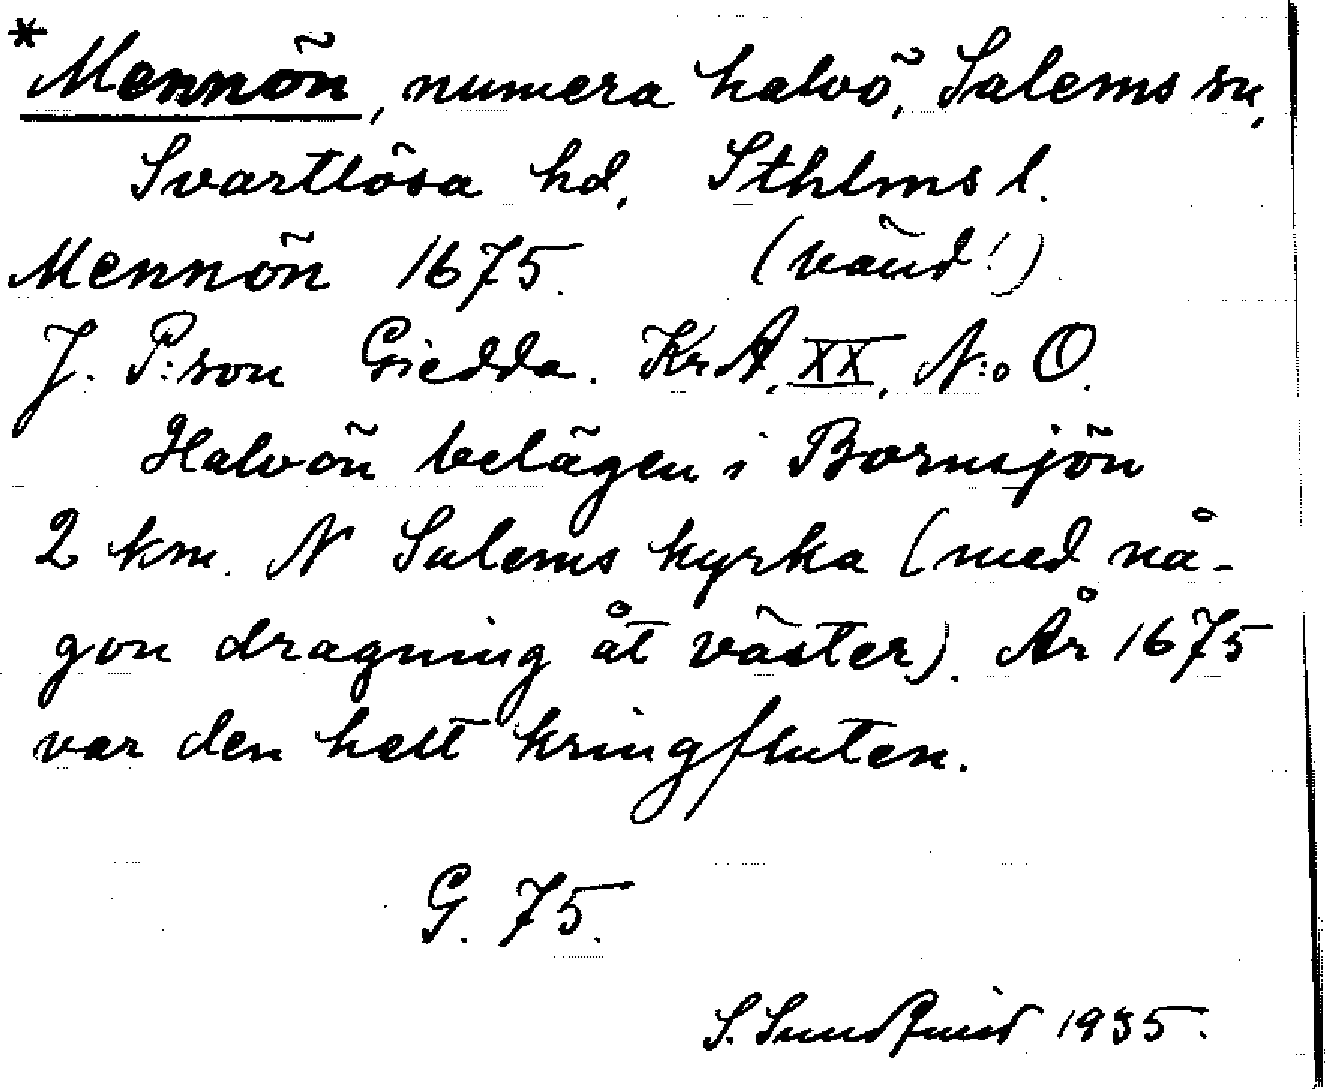 *Mennön, numera halvö, Salems sn,
Svartlösa hd, Sthlms l.
Mennön 1675. (vänd!)
J. P:son Giedda. KrA, XX, N:o O.
Halvön belägen i Bornsjön
2 km. N Salems kyrka (med nå-
gon dragning åt väster). År 1675
var den helt kringfluten.
G. 75.
S. Sundquist 1935.